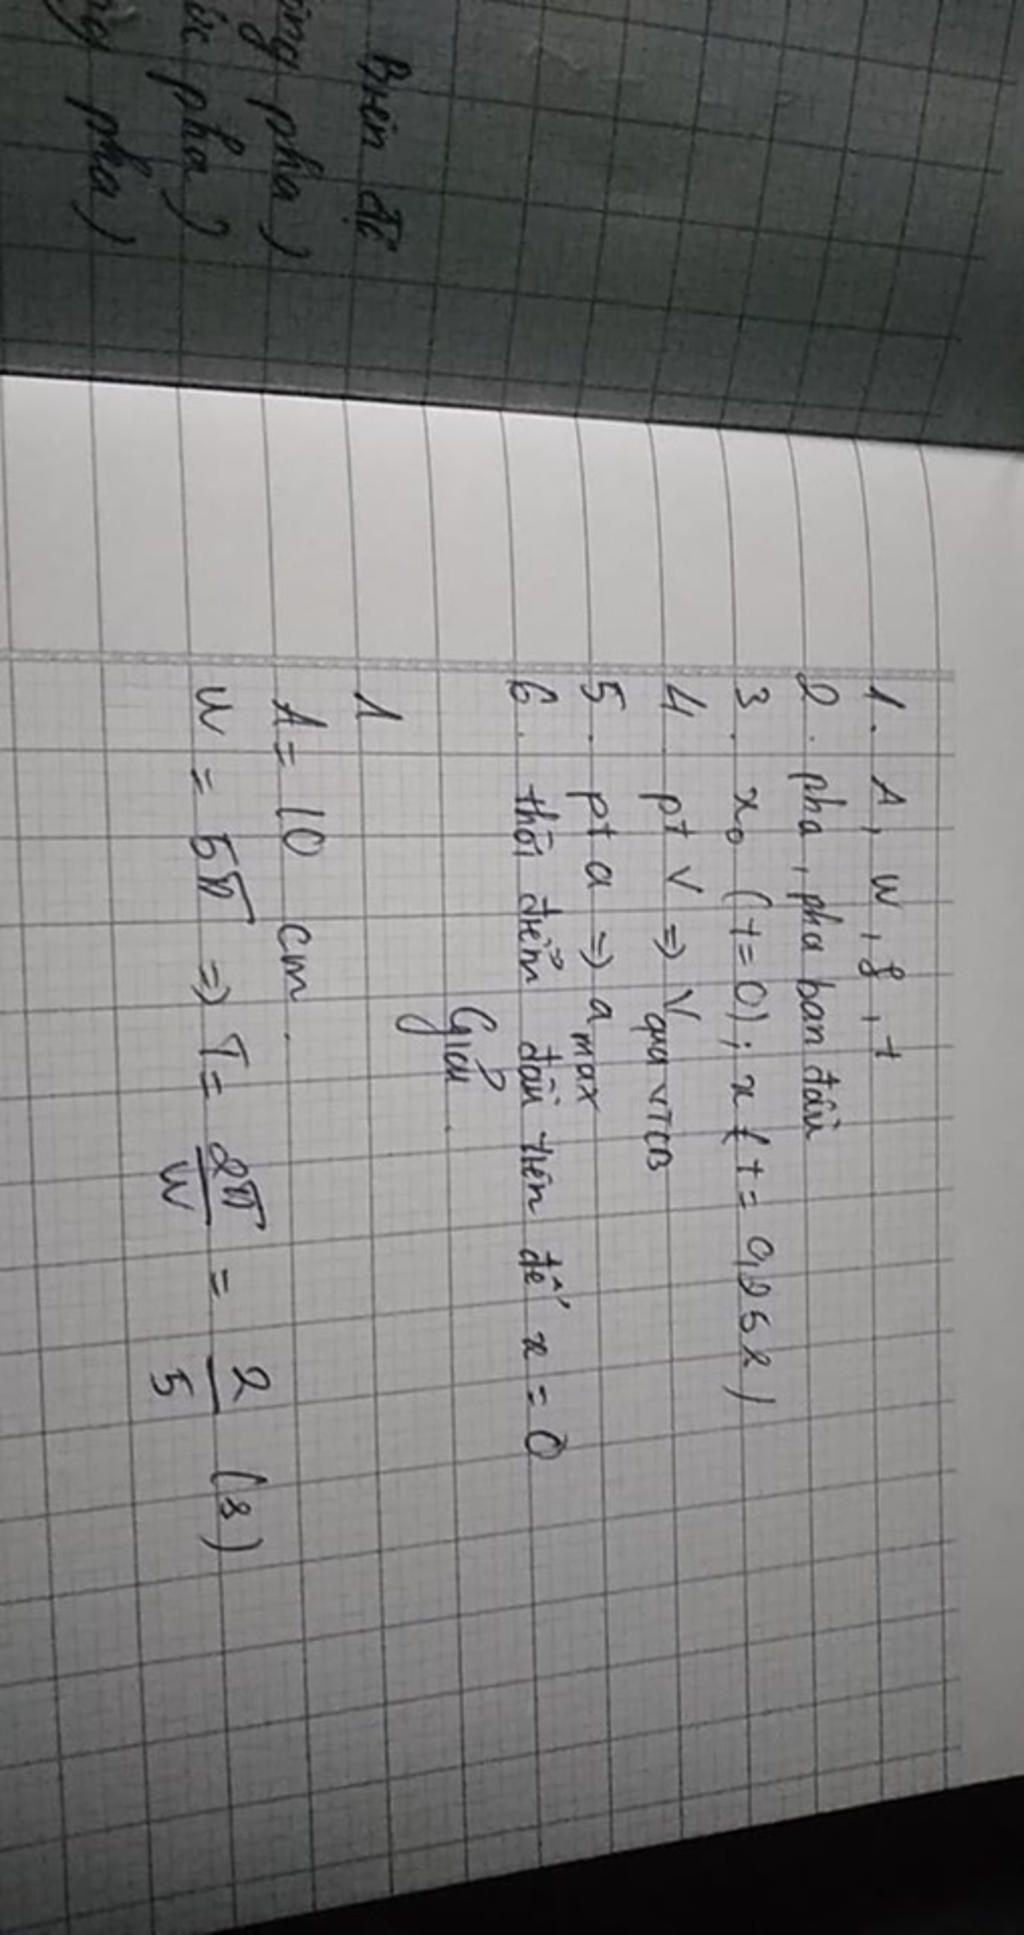 Biên độ
pha)
pha)
pha)
1. A, w, f, t
2. pha, pha ban đầu
3. x₀ (t=0); x (t = 0,25s)
4. pt v => v qua VTCB
5. pt a => a max
6. thời điểm đầu tiên để x = 0
Giải.
1
A = 10 cm.
w = 5π => T = 2π/w = 2/5 (s)